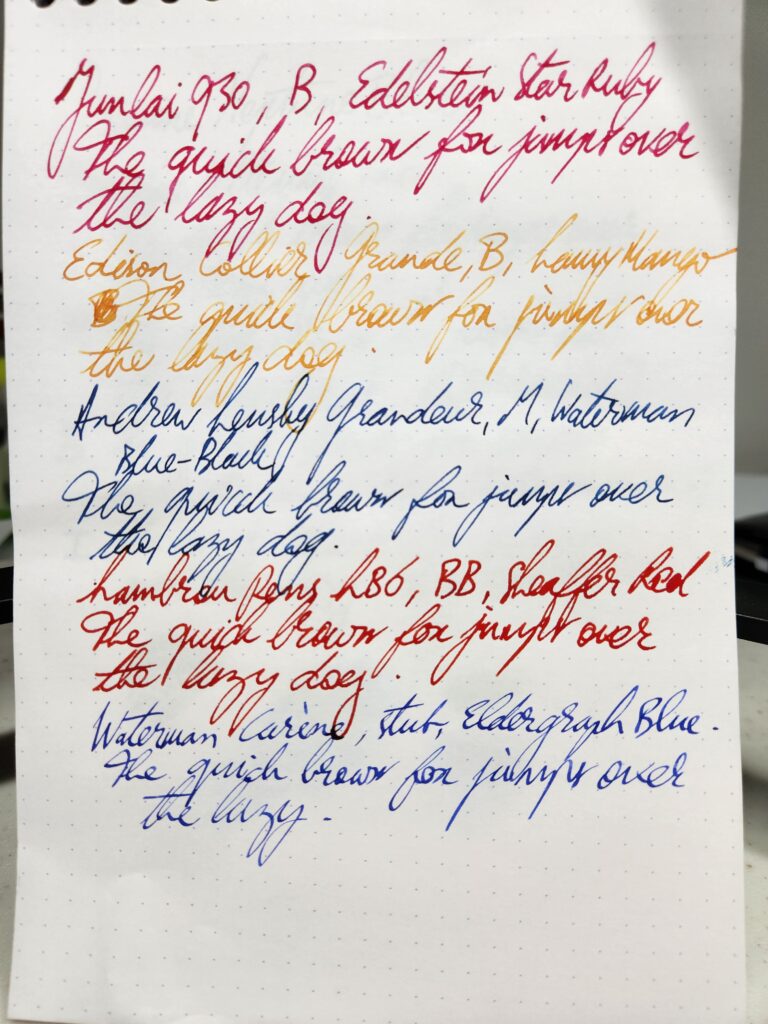 Junlai 930, B, Edelstein Star Ruby
The quick brown fox jumps over
the lazy dog.
Edison Collier Grande, B, Lamy Mango
The quick brown fox jumps over
the lazy dog.
Andrew Lensky Grandeur, M, Waterman
Blue-Black
The quick brown fox jumps over
the lazy dog.
Lambrou Pens L86, BB, Sheaffer Red
The quick brown fox jumps over
the lazy dog.
Waterman Carène, stub, Eldergraph Blue.
The quick brown fox jumps over
the lazy.